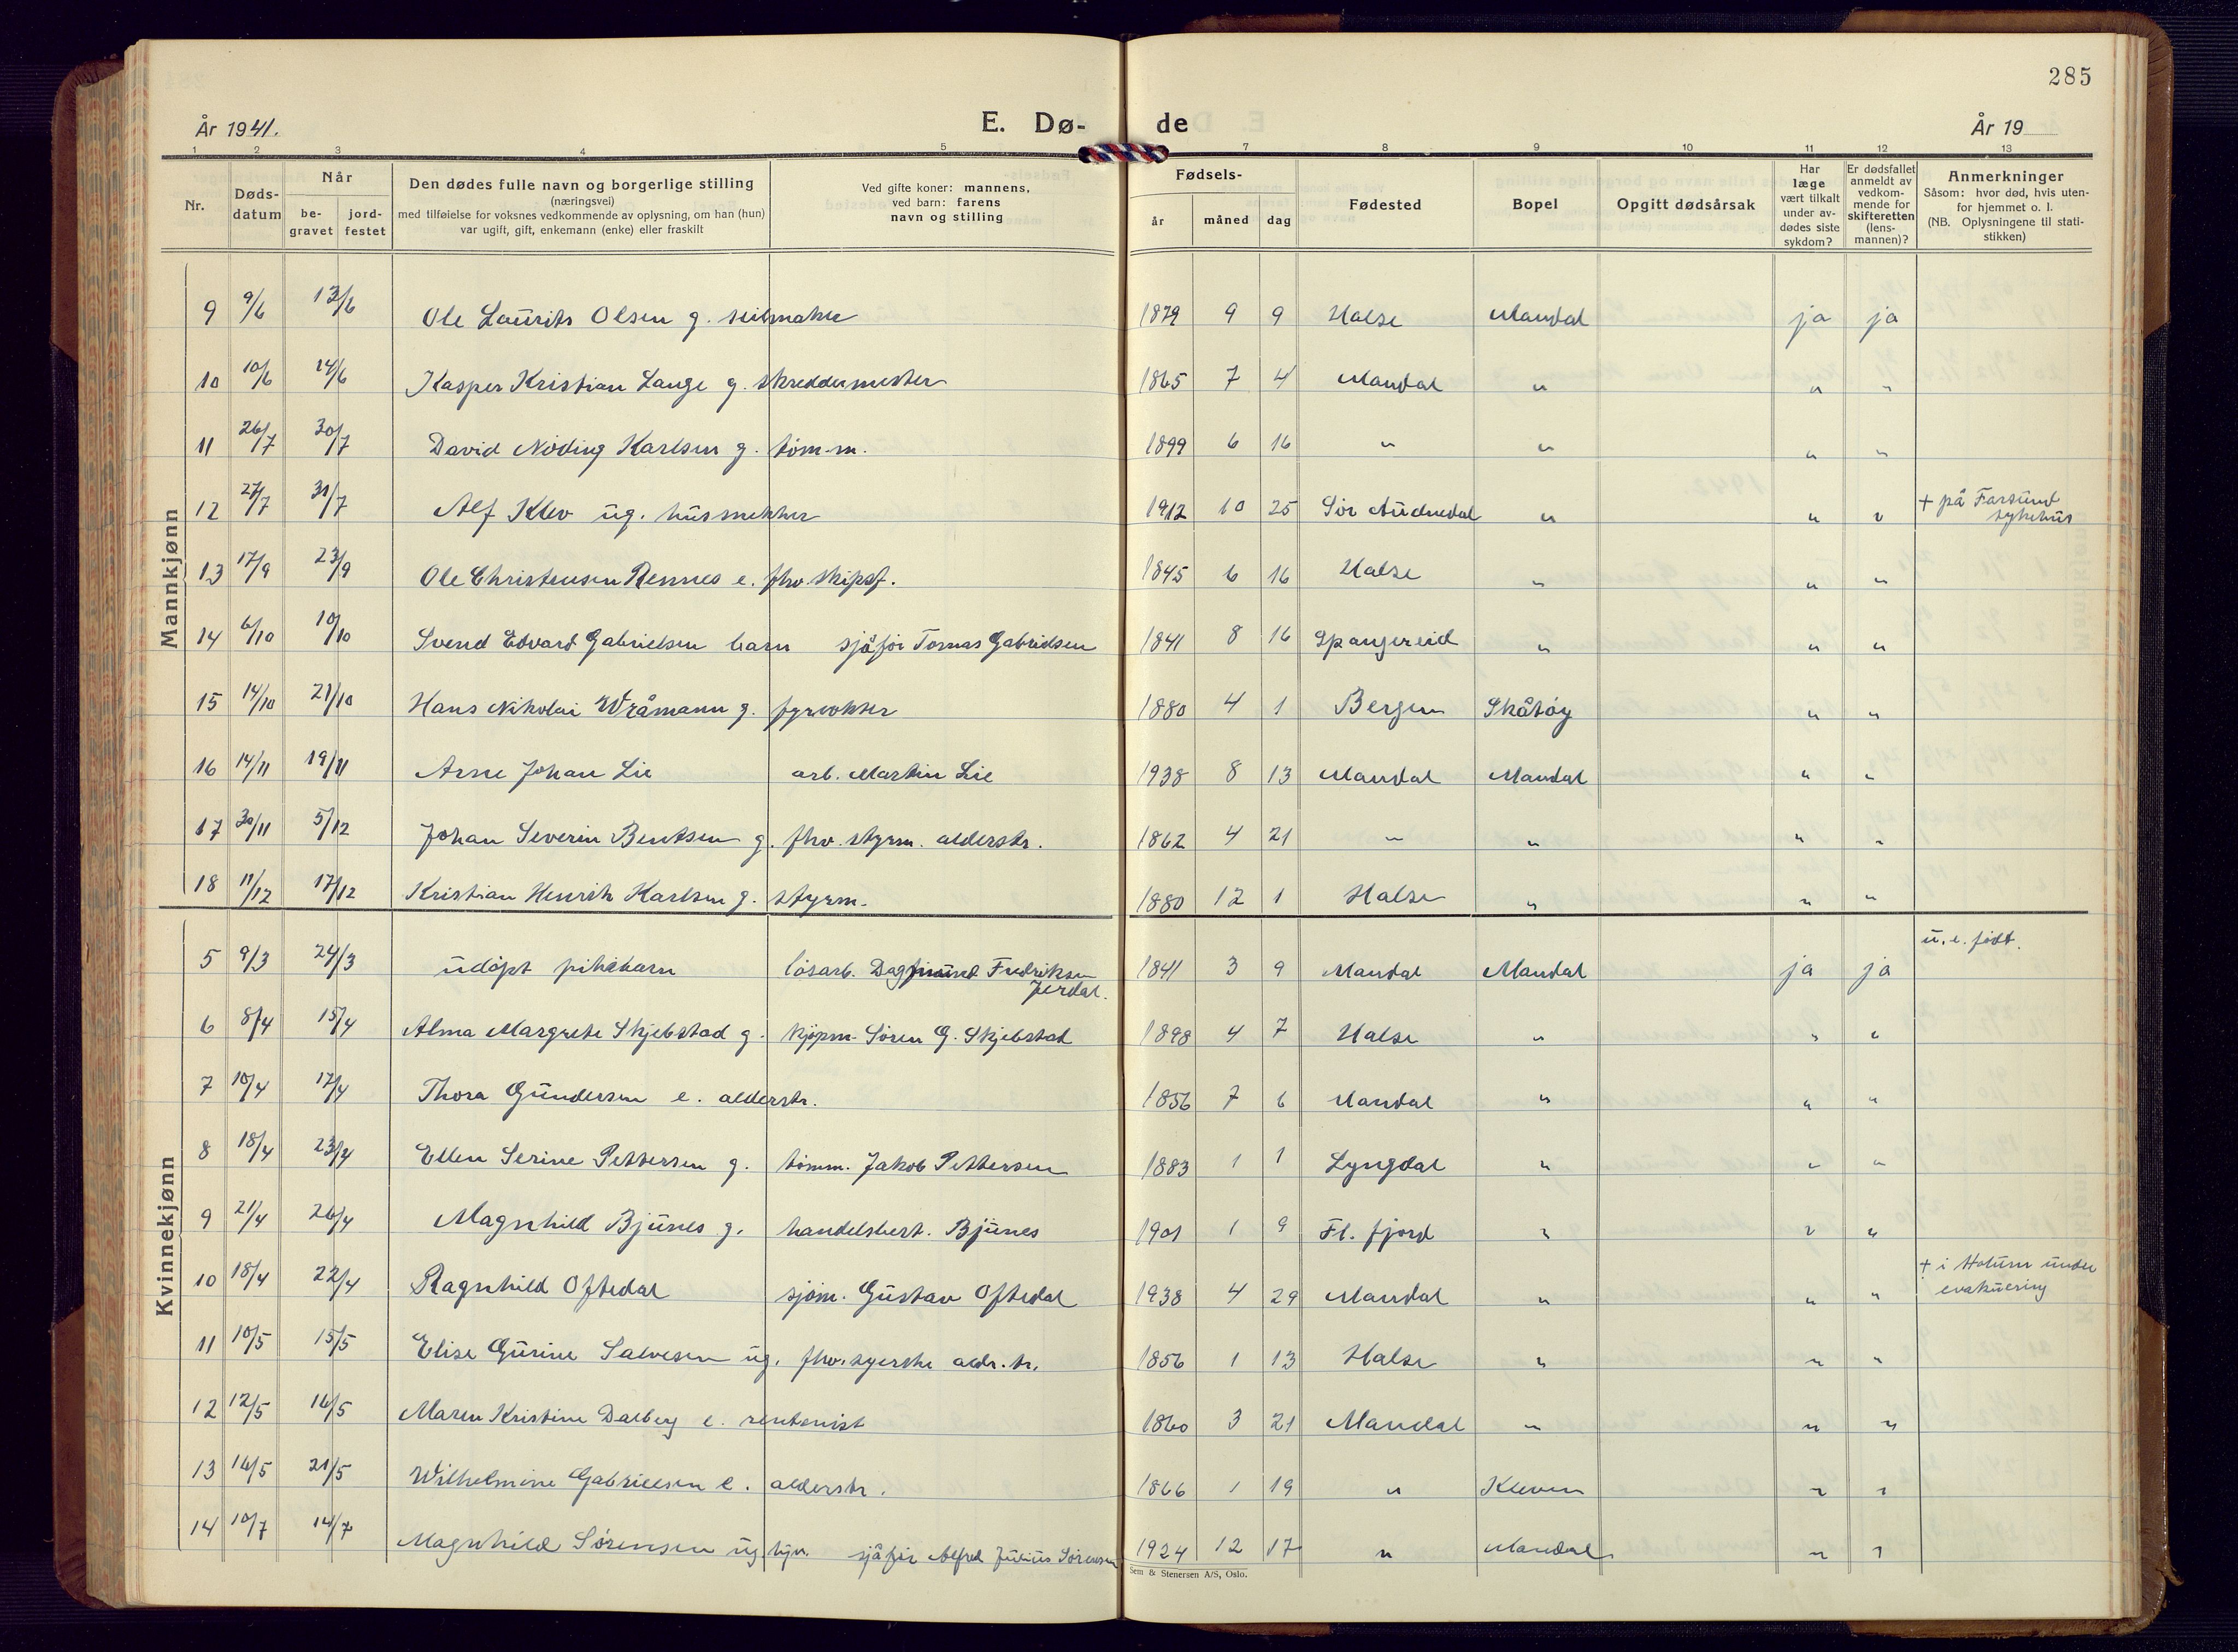 285
År 1941.
E. Dø-
de
År 19
1 2 3 4 5 7 8 9 10 11 12 13
Nr.
Døds-
datum
Når
be-
gravet
jord-
festet
Den dødes fulle navn og borgerlige stilling
(næringsvei)
med tilføielse for voksnes vedkommende av oplysning, om han (hun)
var ugift, gift, enkemann (enke) eller fraskilt
Ved gifte koner: mannens,
ved barn: farens
navn og stilling
Fødsels-
år
måned
dag
Fødested
Bopel
Opgitt dødsårsak
Har
læge
vært tilkalt
under av-
dødes siste
sykdom?
Er dødsfallet
anmeldt av
vedkom-
mende for
skifteretten
(lens-
mannen)?
Anmerkninger
Såsom: hvor død, hvis uten-
for hjemmet o. l.
(NB. Oplysningene til stati-
stikken)
Mannkjønn
9 9/6 13/6 Ole Laurits Olsen g. seilmaker 1879 9 9 Halse Mandal ja ja
10 10/6 14/6 Kasper Kristian Lange g. skreddermester 1865 7 4 Mandal " " "
11 26/7 30/7 David Nöding Karlsen g. töm.m. 1899 6 16 " " " "
12 27/7 31/7 Alf Klev ug. husmekker 1912 10 25 Sör Audnedal " " " + på Farsund
sykehus
13 17/9 23/9 Ole Christensen Rennes e. fhv. skipsf. 1845 6 16 Halse " " "
14 6/10 10/10 Svend Edvard Gabrielsen barn sjåför Tomas Gabrielsen 1841 8 16 Spangereid " " "
15 14/10 21/10 Hans Nikolai Wråmann g. fyrvokter 1880 4 1 Bergen Skåtöy " "
16 14/11 19/11 Arne Johan Lie arb. Martin Lie 1938 8 13 Mandal Mandal " "
17 30/11 5/12 Johan Severin Bentsen g. fhv. styrm. alderstr. 1862 4 21 " " " "
18 11/12 17/12 Kristian Henrik Karlsen g. styrm. 1880 12 1 Halse " " "
Kvinnekjønn
5 9/3 24/3 udöpt pikebarn lösarb. Dagfinn Fredriksen 1841 3 9 Mandal Mandal ja ja u.e. födt.
Jerdal.
6 8/4 15/4 Alma Margrete Skjebstad g. kjöpm. Sören G. Skjebstad 1898 4 7 Halse " " "
7 10/4 17/4 Thora Gundersen e. alderstr. 1856 7 6 Mandal " " "
8 18/4 23/4 Ellen Serine Pettersen g. tömm. Jakob Pettersen 1883 1 1 Lyngdal " " "
9 21/4 26/4 Magnhild Bjunes g. handelsbest. Bjunes 1901 1 9 Fl. fjord " " "
10 18/4 22/4 Ragnhild Oftedal sjöm. Gustav Oftedal 1938 4 29 Mandal " " " + i Holum under
evakuering
11 10/5 15/5 Elise Gurine Salvesen ug. fhv. syerske aldr.tr. 1856 1 13 Halse " " "
12 12/5 16/5 Maren Kristine Dalberg e. rentenist 1860 3 21 Mandal " " "
13 16/5 21/5 Wilhelmine Gabrielsen e. alderstr. 1866 1 19 " Kleven " "
14 10/7 14/7 Magnhild Sörensen ug. hjv. sjåför Alfred Julius Sörensen 1924 12 17 " Mandal " "
Sem & Stenersen A/S, Oslo.